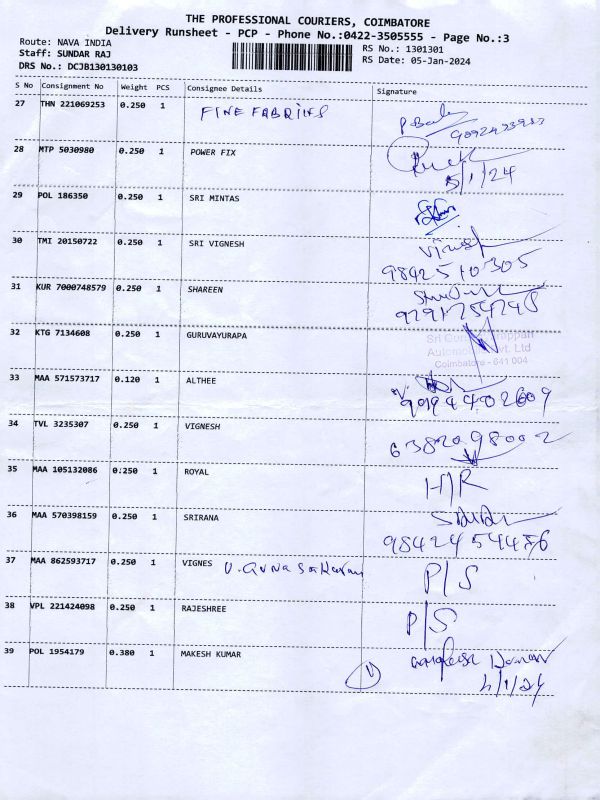 THE PROFESSIONAL COURIERS, COIMBATORE
Delivery Runsheet - PCP - Phone No.:0422-3505555 - Page No.:3
Route: NAVA INDIA
Staff: SUNDAR RAJ
DRS No.: DCJB130130103
RS No.: 1301301
RS Date: 05-Jan-2024
S No Consignment No Weight PCS Consignee Details Signature
27 THN 221069253 0.250 1 FINE FABRINS
28 MTP 5030980 0.250 1 POWER FIX
5/1/24
29 POL 186350 0.250 1 SRI MINTAS
30 TMI 20150722 0.250 1 SRI VIGNESH
98425 10305
31 KUR 7000748579 0.250 1 SHAREEN
32 KTG 7134608 0.250 1 GURUVAYURAPA
Automo Pvt. Ltd
Coimbatore - 641 004
33 MAA 571573717 0.120 1 ALTHEE
34 TVL 3235307 0.250 1 VIGNESH
63820 98002
35 MAA 105132086 0.250 1 ROYAL H/R
36 MAA 570398159 0.250 1 SRIRANA
37 MAA 862593717 0.250 1 VIGNES P/S
38 VPL 221424098 0.250 1 RAJESHREE P/S
39 POL 1954179 0.380 1 MAKESH KUMAR